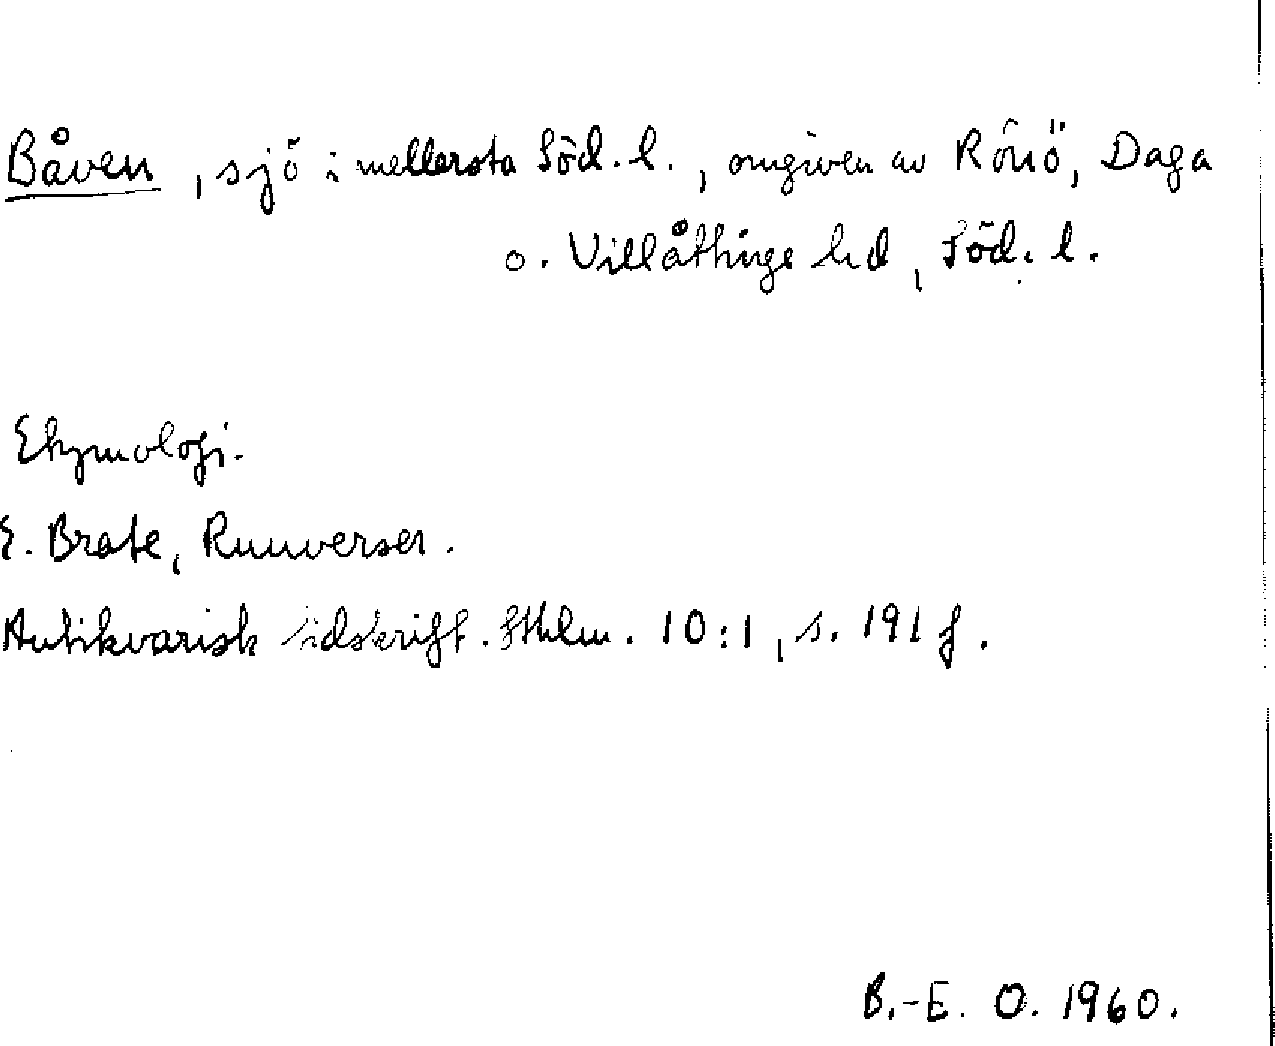 Båven, sjö i mellersta Söd. l., omgiven av Rönö, Daga
o. Villåttinge hd, Söd. l.
Etymologi.
E. Brate, Runverser.
Antikvarisk tidskrift. Sthlm. 10:1, s. 191 f.
B.-E. O. 1960.